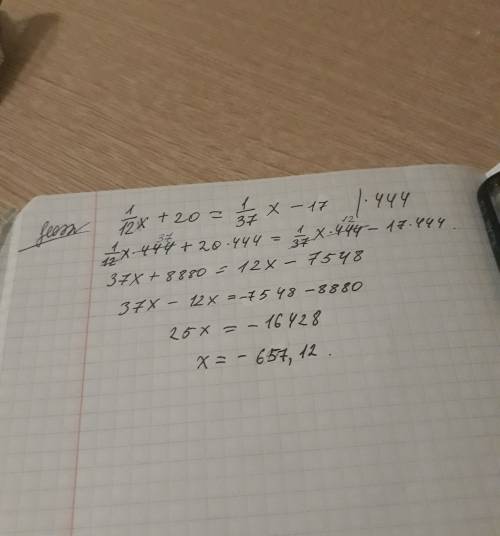 1/12 x + 20 = 1/37 x - 17 | · 444
1/12 x · 444 37 + 20 · 444 = 1/37 x · 444 12 - 17 · 444.
37x + 8880 = 12x - 7548
37x - 12x = -7548 - 8880
25x = - 16428
x = - 657,12.